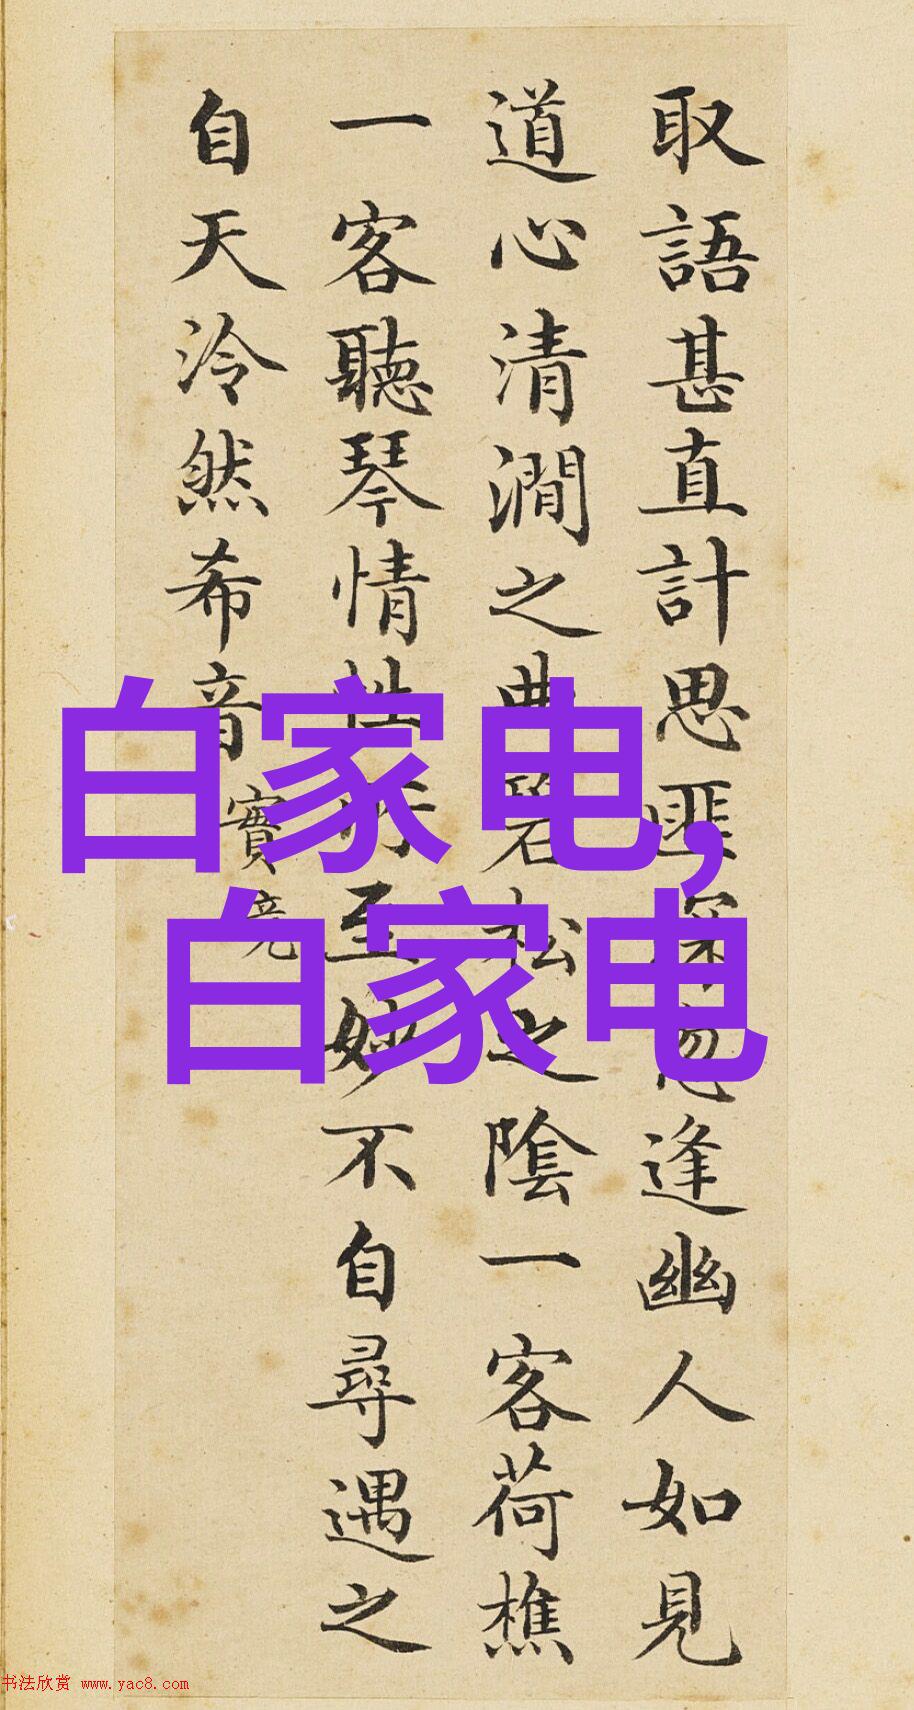 取語甚直計思匪深忽逢幽人如見
道心清澗之曲碧松之陰一客荷樵
一客聽琴情性所至妙不自尋遇之
自天泠然希音
實竟
白家电,
白家电
书法欣赏 www.yac8.com